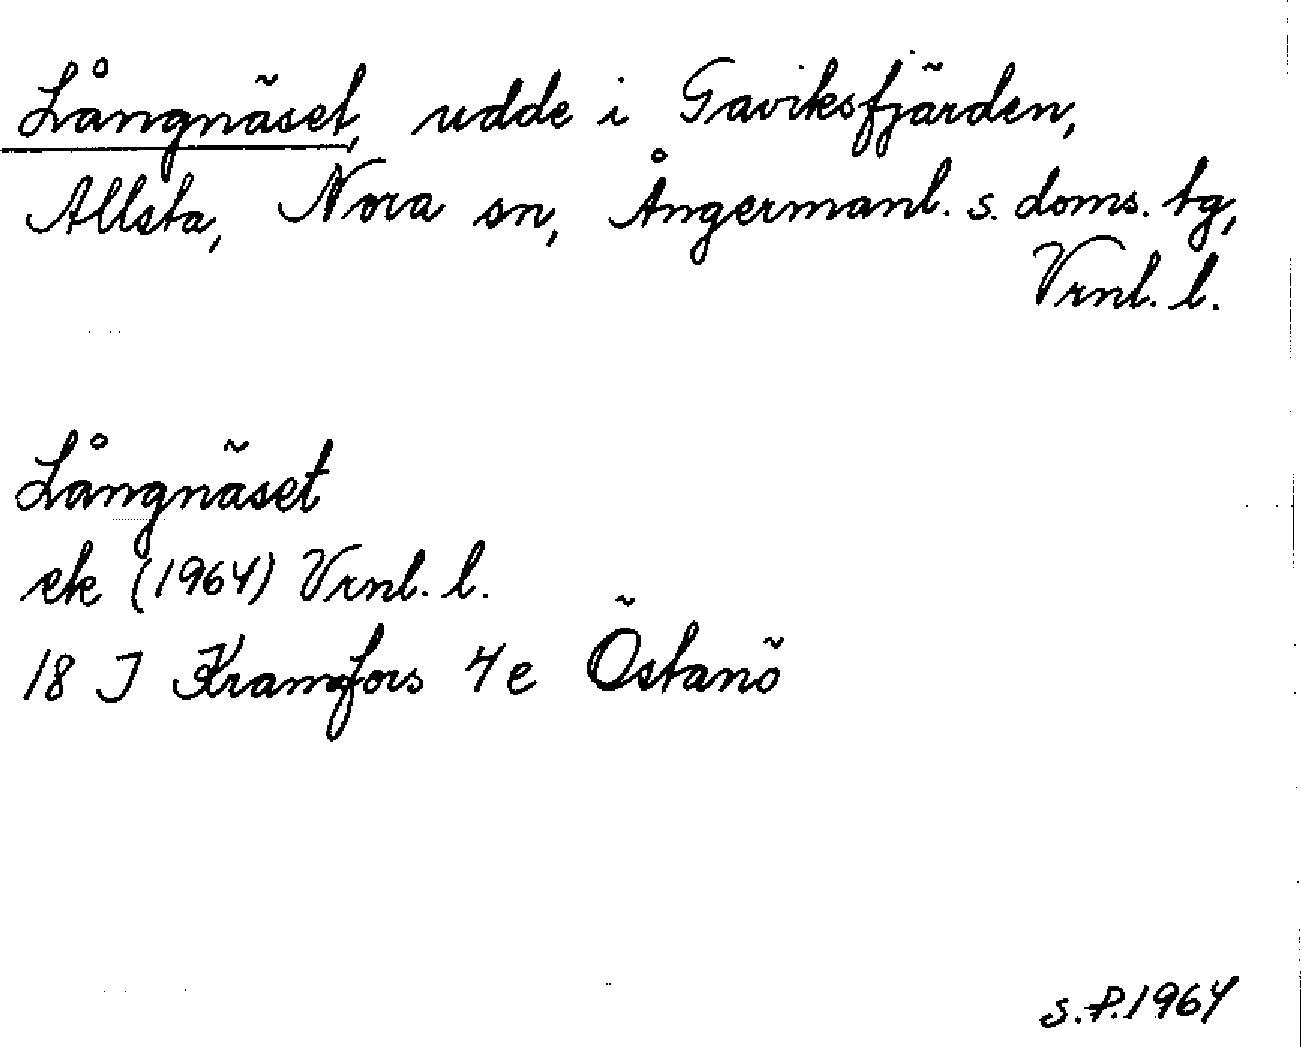 Långnäset, udde i Gaviksfjärden,
Allsta, Nora sn, Ångermanl. s. doms. tg,
Vrnl. l.
Långnäset
ek (1964) Vrnl. l.
18 J Kramfors 4e Östanö
S.P.1964